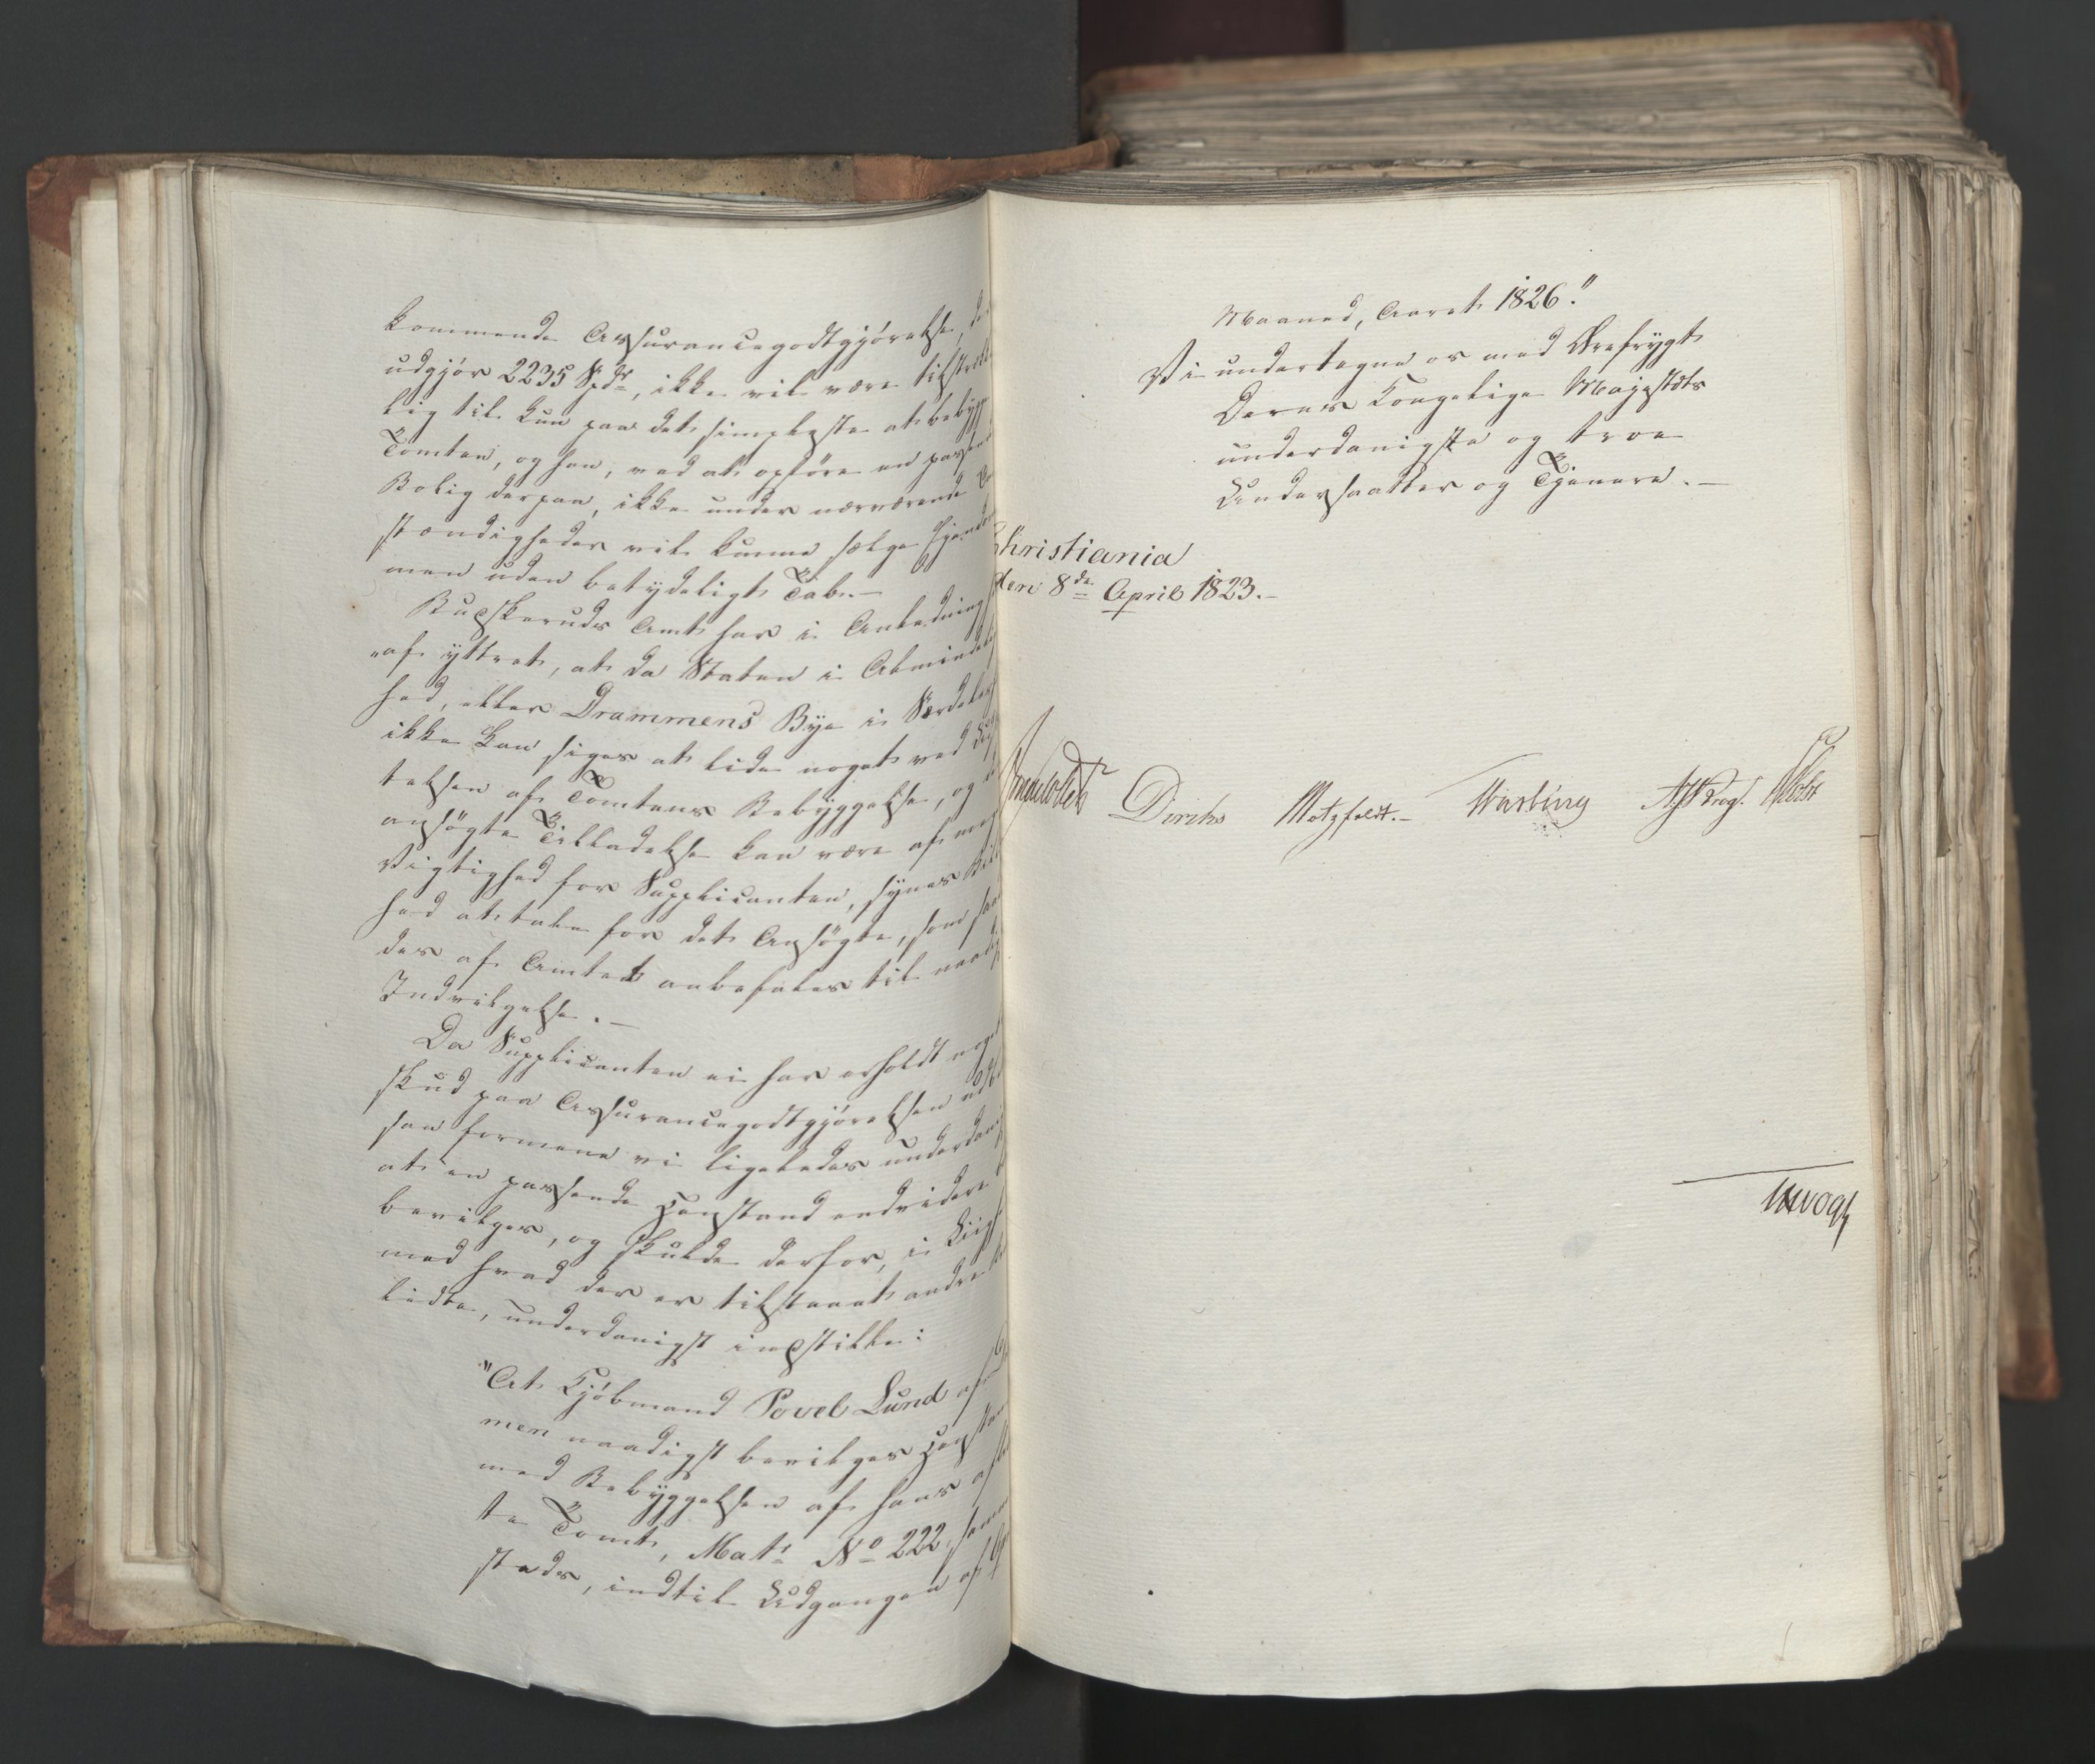 kommende Assurancegodtgjörelse,
udgjör 2235 Spdr, ikke vil være tilstrek
lig til kun paa det simpleste at bebygge
Tomten, og han, ved at opföre en passende
Bolig derpaa, ikke under nærværende
stændigheder vil kunne sælge Eyendom
men uden betydeligt Tab.—
Buskeruds Amt har i Anledning
af yttret, at da Staten i Almindelig
hed, eller Drammens Bye i Særdeles
ikke kan siges at lide noget ved
telsen af Tomtens Bebyggelse, og
ansögte Tilladelse kan være af megen
Vigtighed for Supplicanten, synes
hed at tale for det Ansögte, som saa
des af Amtet anbefales til naadigst
Indvilgelse.—
Da Supplicanten ei har erholdt noget
skud paa Assurancegodtgjörelsen
saa formene vi ligeledes underdanigst
at en passende Henstand endvidere
bevilges, og skulde derfor, i Liighed
med hvad der er tilstaaet andre
lidte, underdanigst indstille:
"At Kjöbmand Povel Lund af
men naadigst bevilges Henstand
med Bebyggelsen af hans
te Tomt, Matr No 222, samme
steds, indtil Udgangen af
Maaned, Aaret 1826."
Vi undertegne os med Ærefrygt
Deres Kongelige Majestæts
underdanigste og troe
Undersaatter og Tjenere.—
Christiania
den 8de April 1823.—
Diriks Motzfeldt.— A J Krog. Holst
Vogt